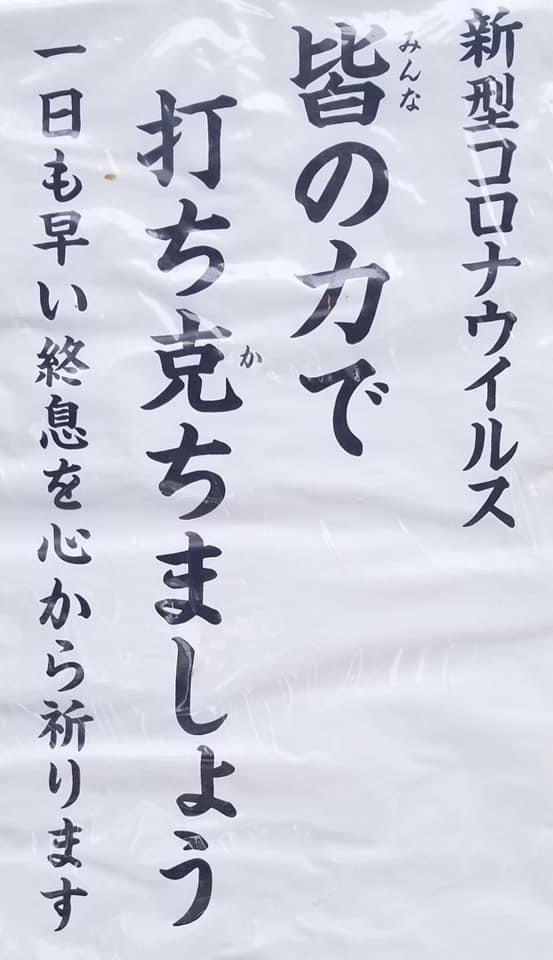 新型コロナウイルス
皆の力で
みんな
打ち克ちましょう
か
一日も早い終息を心から祈ります